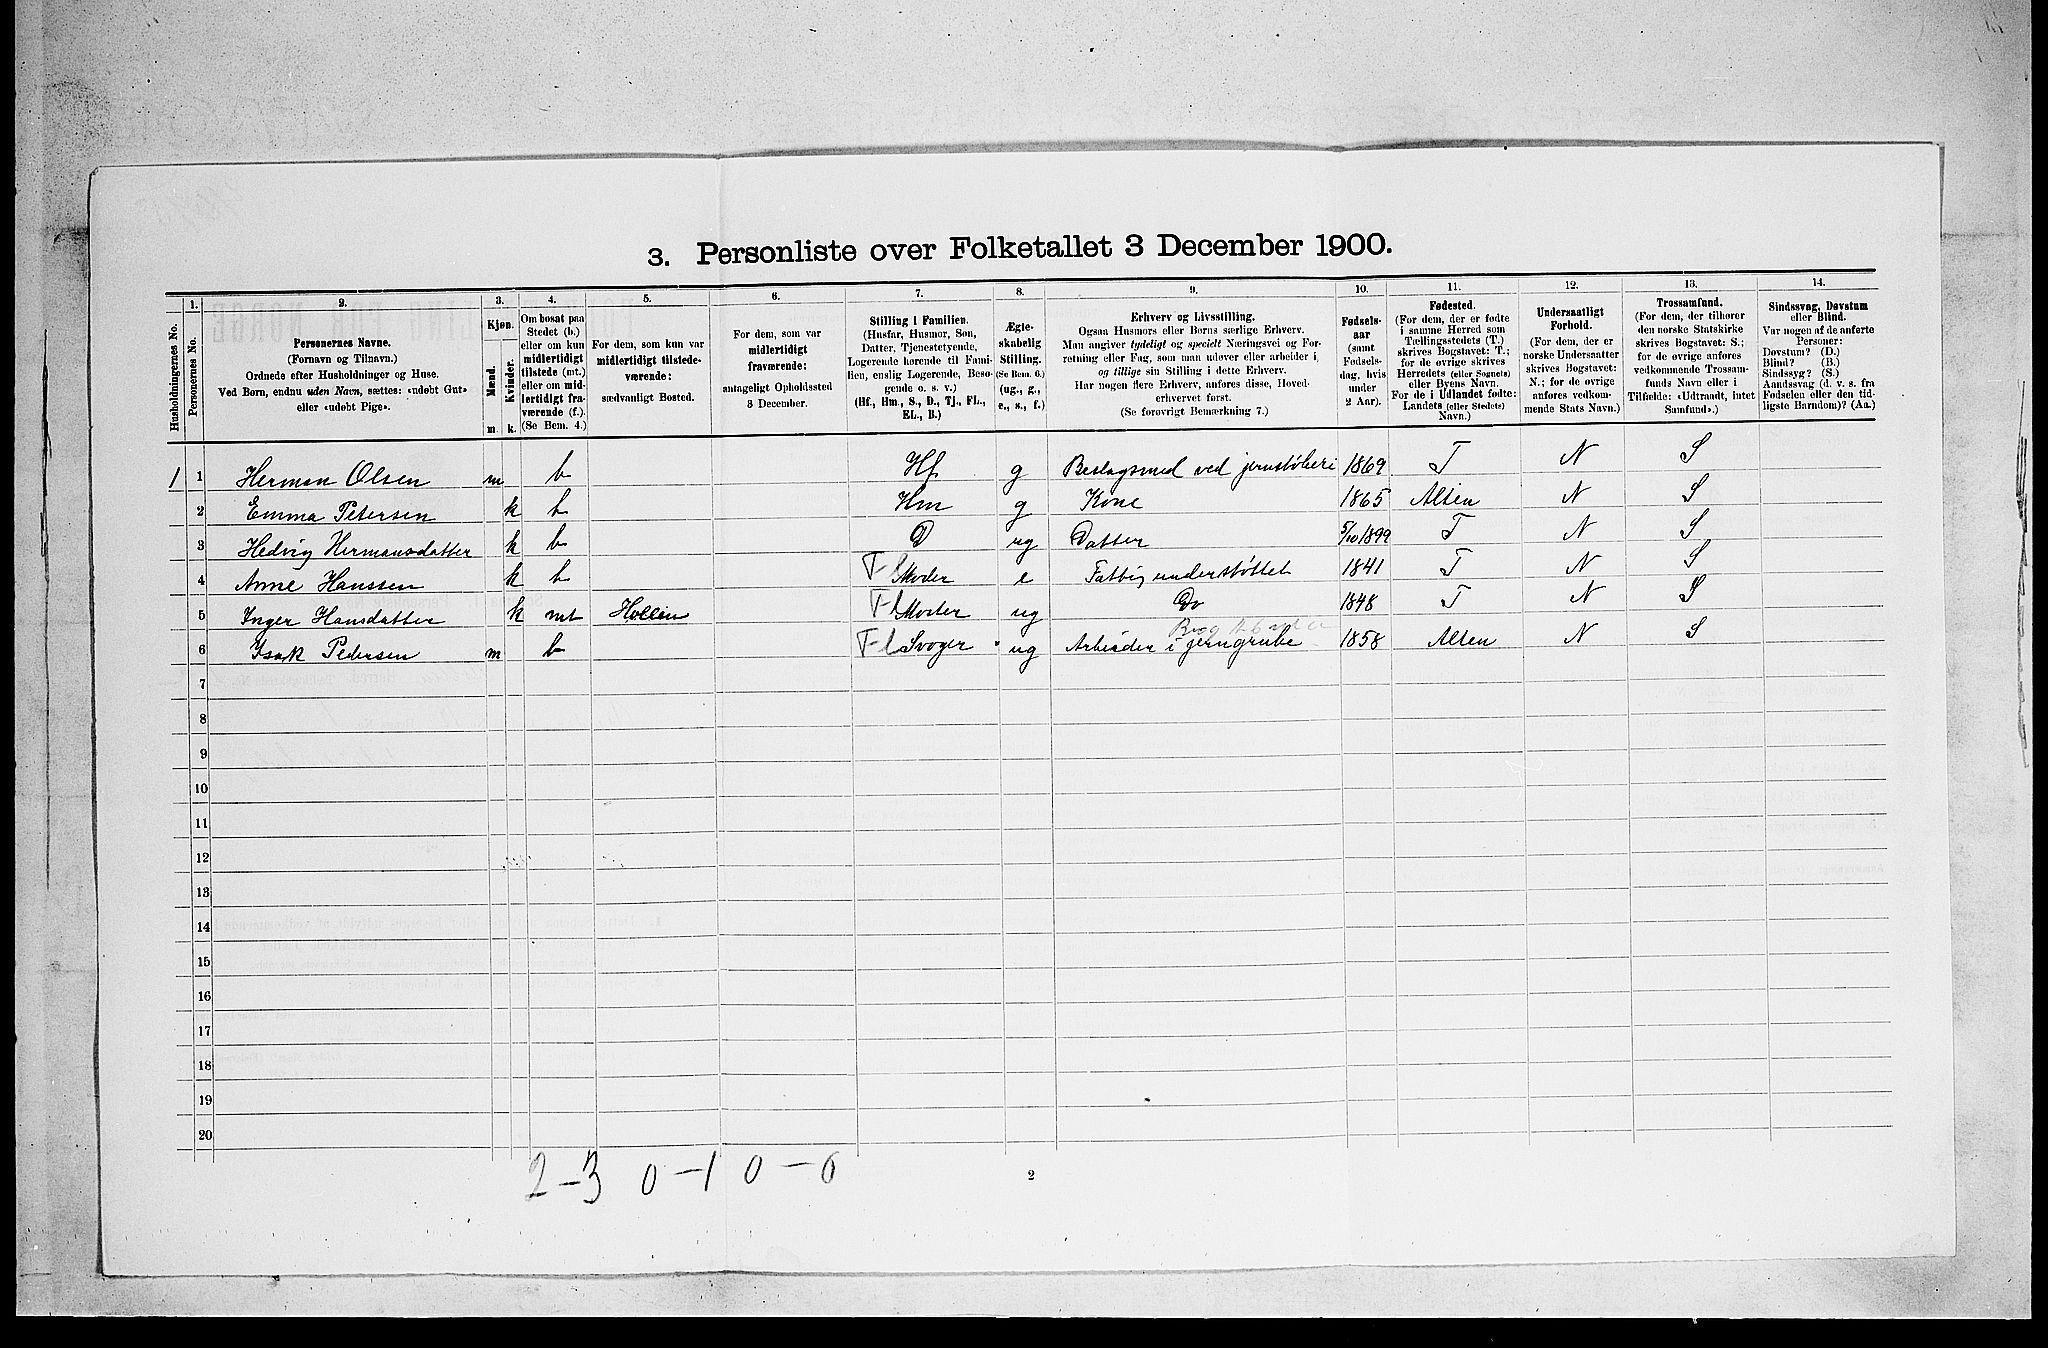 3. Personliste over Folketallet 3 December 1900.
Husholdningernes No.
1.
Personernes No.
2.
Personernes Navne.
(Fornavn og Tilnavn.)
Ordnede efter Husholdninger og Huse.
Ved Børn, endnu uden Navn, sættes: «udøbt Gut»
eller «udøbt Pige».
3.
Kjøn.
Mænd.
Kvinder.
m. k.
4.
Om bosat paa
Stedet (b.)
eller om kun
midlertidigt
tilstede (mt.)
eller om mid-
lertidigt fra-
værende (f.)
(Se Bem. 4.)
5.
For dem, som kun var
midlertidigt tilstede-
værende:
sædvanligt Bosted.
6.
For dem, som var
midlertidigt
fraværende:
antageligt Opholdssted
3 December.
7.
Stilling i Familien.
(Husfar, Husmor, Søn,
Datter, Tjenestetyende,
Logerende hørende til Fami-
lien, enslig Logerende, Besø-
gende o. s. v.)
(Hf., Hm., S., D., Tj., FL.,
EL., B.)
8.
Ægte-
skabelig
Stilling.
(Se Bem. 6.)
(ug., g.,
e., s., f.)
9.
Erhverv og Livsstilling.
Ogsaa Husmors eller Børns særlige Erhverv.
Man angiver tydeligt og specielt Næringsvei og For-
retning eller Fag, som man udøver eller arbeider i,
og tillige sin Stilling i dette Erhverv.
Har nogen flere Erhverv, anføres disse, Hoved-
erhvervet først.
(Se forøvrigt Bemærkning 7.)
10.
Fødsels-
aar
(samt
Fødsels-
dag, hvis
under
2 Aar).
11.
Fødested.
(For dem, der er fødte
i samme Herred som
Tællingsstedets (T.)
skrives Bogstavet: T.;
for de øvrige skrives
Herredets (eller Sognets)
eller Byens Navn.
For de i Udlandet fødte:
Landets (eller Stedets)
Navn.)
12.
Undersaatligt
Forhold.
(For dem, der er
norske Undersaatter
skrives Bogstavet:
N.; for de øvrige
anføres vedkom-
mende Stats Navn.)
13.
Trossamfund.
(For dem, der tilhører
den norske Statskirke
skrives Bogstavet: S.;
for de øvrige anføres
vedkommende Trossam-
funds Navn eller i
Tilfælde: «Udtraadt, intet
Samfund».)
14.
Sindssvag, Døvstum
eller Blind.
Var nogen af de anførte
Personer:
Døvstum? (D.)
Blind? (B.)
Sindssyg? (S.)
Aandssvag (d. v. s. fra
Fødselen eller den tid-
ligste Barndom)? (Aa.)
1 1 Herman Olsen m b Hf g Beslagsmed ved jernstøberi 1869 T N S
2 Emma Petersen k b Hm g Kone 1865 Alten N S
3 Hedvig Hermansdatter k b D ug Datter 5/10 1899 T N S
4 Anne Hanssen k b Fl Moder e Fattig understøttet 1841 T N S
5 Inger Hansdatter k mt Hollen Fl Moster ug Do 1848 T N S
6 Isak Pedersen m b Fl Svoger ug Arbeider i jerngrube 1858 Alten N S
7
8
9
10
11
12
13
14
15
16
17
18
19
20
2-3 0-1 0-0
2